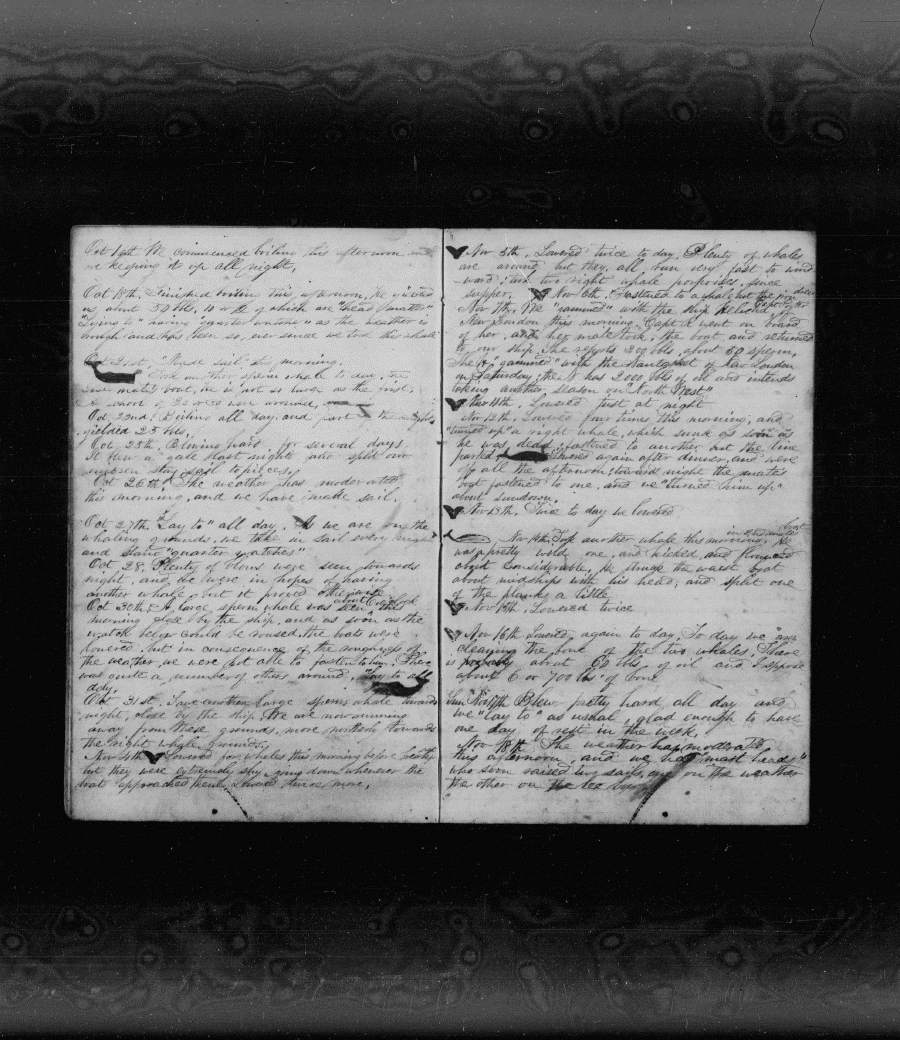 Oct 17th We commenced boiling this afternoon and
are keeping it up all night,
Oct 18th, Finished boilin this afternoon, He yielded
us about 30 bbls, 10 of which are "head matter"
"Lying to" having "quarter watches" as the weather is
rough and has been so, ever since we took this whale
Oct 21st, "Made sail" this morning.
Took an other sperm whale to day, the
mates boat, he is not so large as the first,
others were around,
Oct 22nd, Boiling all day and part of the night,
yielded 25 bbls,
Oct 25th, Blowing hard for several days.
It blew a gale last night and split our
mizzen stay sail to pieces,
Oct 26th, The weather has moderated
this morning, and we have made sail.
Oct 27th, "Lay to" all day, As we are on the
whaling grounds, we take in sail every night
and stand "quarter watches"
Oct 28, Plenty of blows were seen towards
night, and we were in hopes of having
another whale, but it proved otherwise
Oct 30th, A large sperm whale was seen about 6 o'clock this
morning close by the ship, and as soon as the
watch below could be roused, the boats were
lowered, but in consequence of the roughness of
the weather, we were not able to fasten to him, There
was quite a number of others around, "Lay to" all
day,
Oct 31st, Saw another large sperm whale towards
night, close by the ship, We are now running
away from these grounds, more northerly towards
the right whale grounds,
Nov 4th Lowered for whales this morning before breakfast
but they were extremely shy, going down whenever the
boat approached them, Lowered twice more,
Nov 5th, Lowered twice to day, Plenty of whales
are around, but they all run very fast to wind-
ward; two right whale porpoises, since
supper, Nov 6th, Fastened to a whale, but the iron drew
Nov 11th, We "gammed" with the ship of
New London this morning, Capt went on board
of her, and her mate took the boat and returned
to our ship, She reports 200 bbls, about 60 sperm,
She "gammed" with the of New London
on Saturday, the has 2000 bbls of oil and intends
taking another season in "North West"
Nov Lowered just at night
Nov 12th, Lowered four time this morning, and
"turned up" a right whale, which sunk as soon as
he was dead, fastened to another but the line
parted, Lowered again after dinner, and were
off all the afternoon, toward night the mates
boat fastened to one, and we "turned him up"
about sundown,
Nov 13th, Twice to day we lowered
Nov 14th, Took another whale this morning, in the mates boat He
was a pretty wild one, and kicked, and flounced
about considerable, He struck the waist boat
about midships with his head, and split one
of the planks a little
Nov 15th, Lowered twice
Nov 16th Lowered again to day, To day we "are
cleaning the bone of the two whales, There
is probably about 60 bbls, of oil and I suppose
about 6 or 700 lbs of bone
Sun, Nov 17th Blew pretty hard, all day and
we "lay to" as usual, glad enough to have
one day of rest in the week,
Nov 18th The weather has moderated
this afternoon, and we had "mast heads"
who soon raised two sails, one on the weather
the other on the lee bow